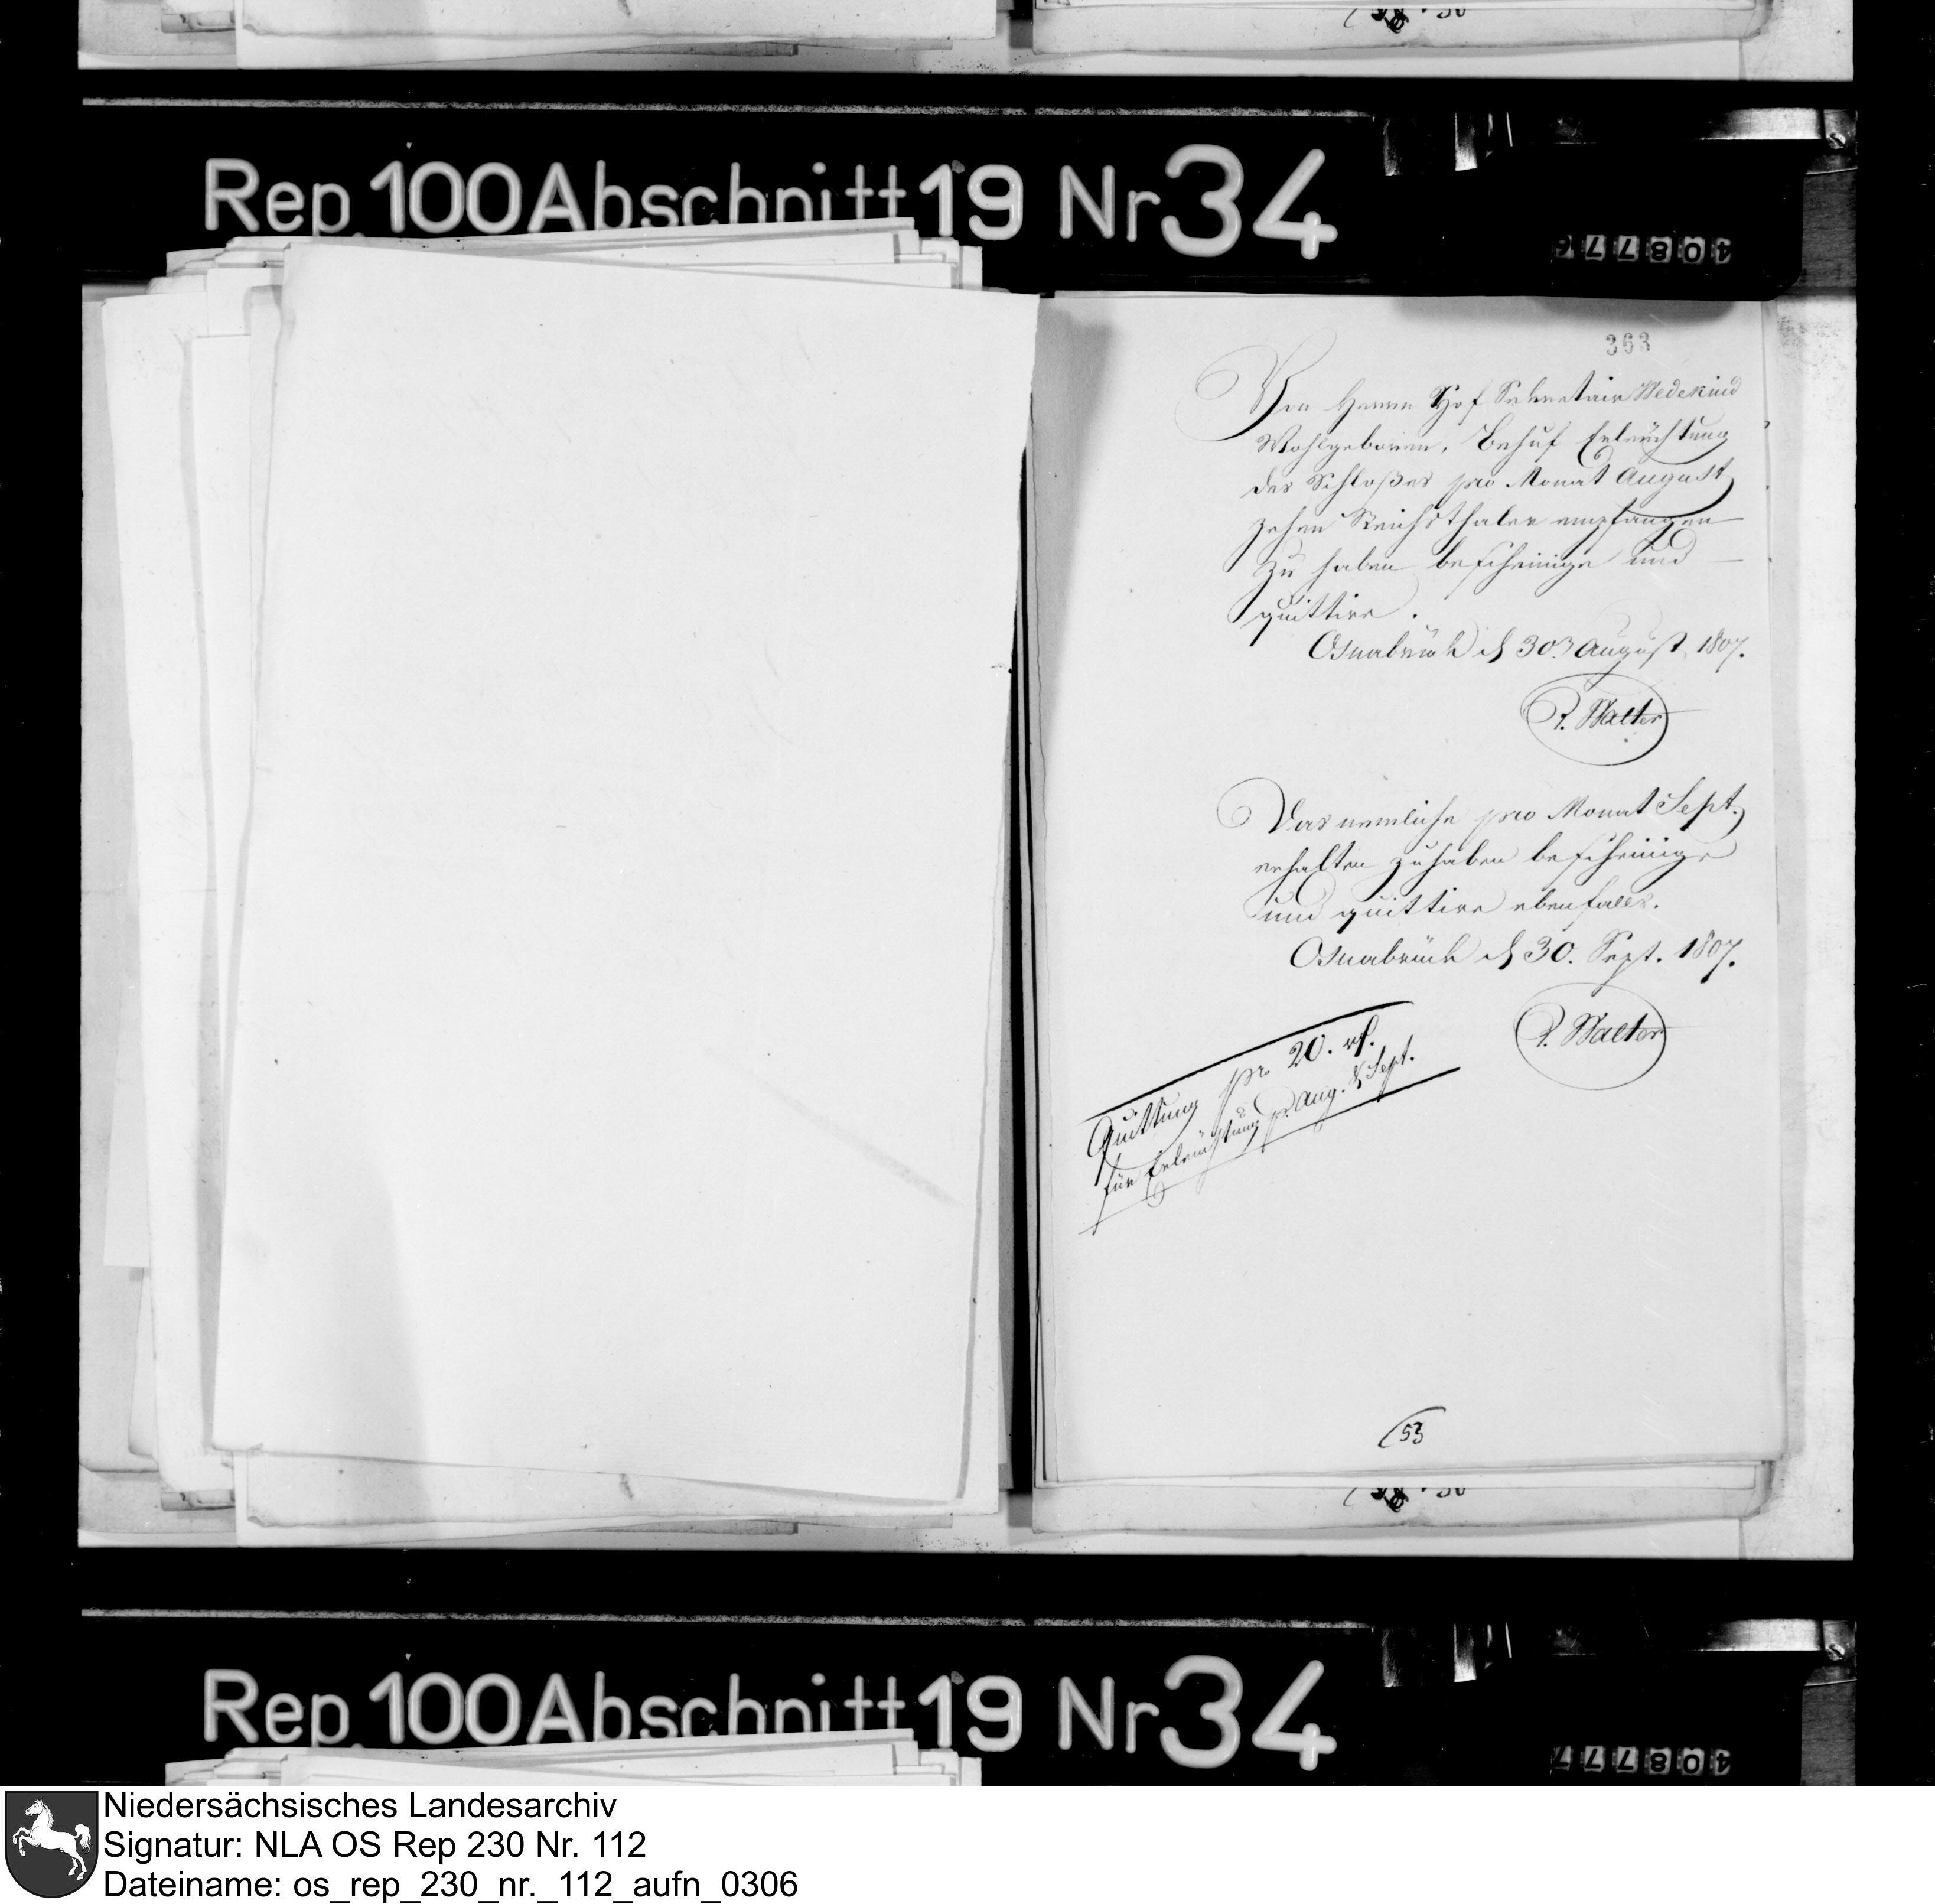 Rep. 100 Abschnitt 19 Nr 34
408776
363
Von Herrn Hof Sekretair Wedekind
Wohlgeboren, Behuf Erleuchtung
des Schloßes pro Monat August
zehen Reichsthaler empfangen
zu haben bescheinige und
quittire.
Osnabrück d 30. August 1807.
P. Walter
Das nemliche pro Monat Sept.
erhalten zu haben bescheinige
und quittire ebenfalls.
Osnabrück d 30. Sept. 1807.
P. Walter
Quittung pr. 20. rt.
für Erleuchtung pr. Aug. & Sept.
53
Rep. 100 Abschnitt 19 Nr 34
408777
Niedersächsisches Landesarchiv
Signatur: NLA OS Rep 230 Nr. 112
Dateiname: os_rep_230_nr._112_aufn_0306